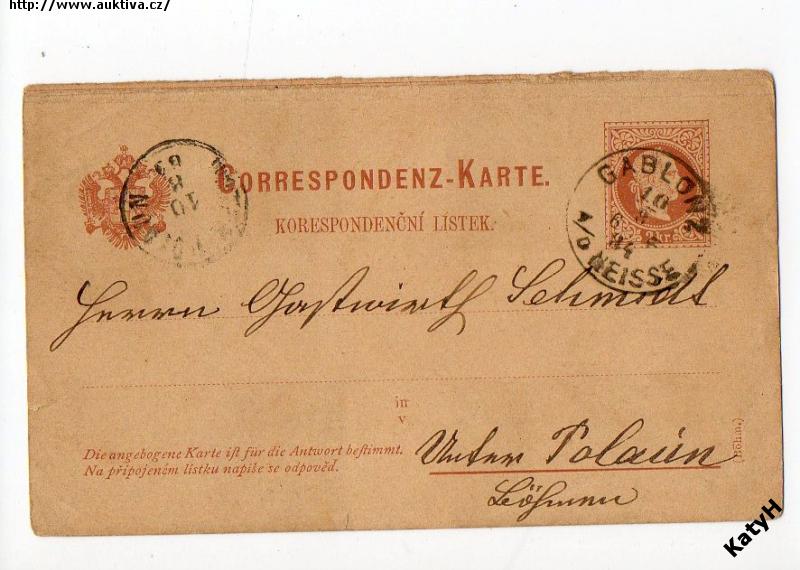 http://www.auktiva.cz/
CORRESPONDENZ-KARTE.
KORESPONDENČNÍ LÍSTEK.
2 kr.
GABLONZ
10
6
84
A/D NEISSE
10
8
Herrn Gastwirth Schmidt
in
v
Unter Polaun
Böhmen
(Böhm.)
Die angebogene Karte ist für die Antwort bestimmt.
Na připojeném lístku napiše se odpověd.
KatyH